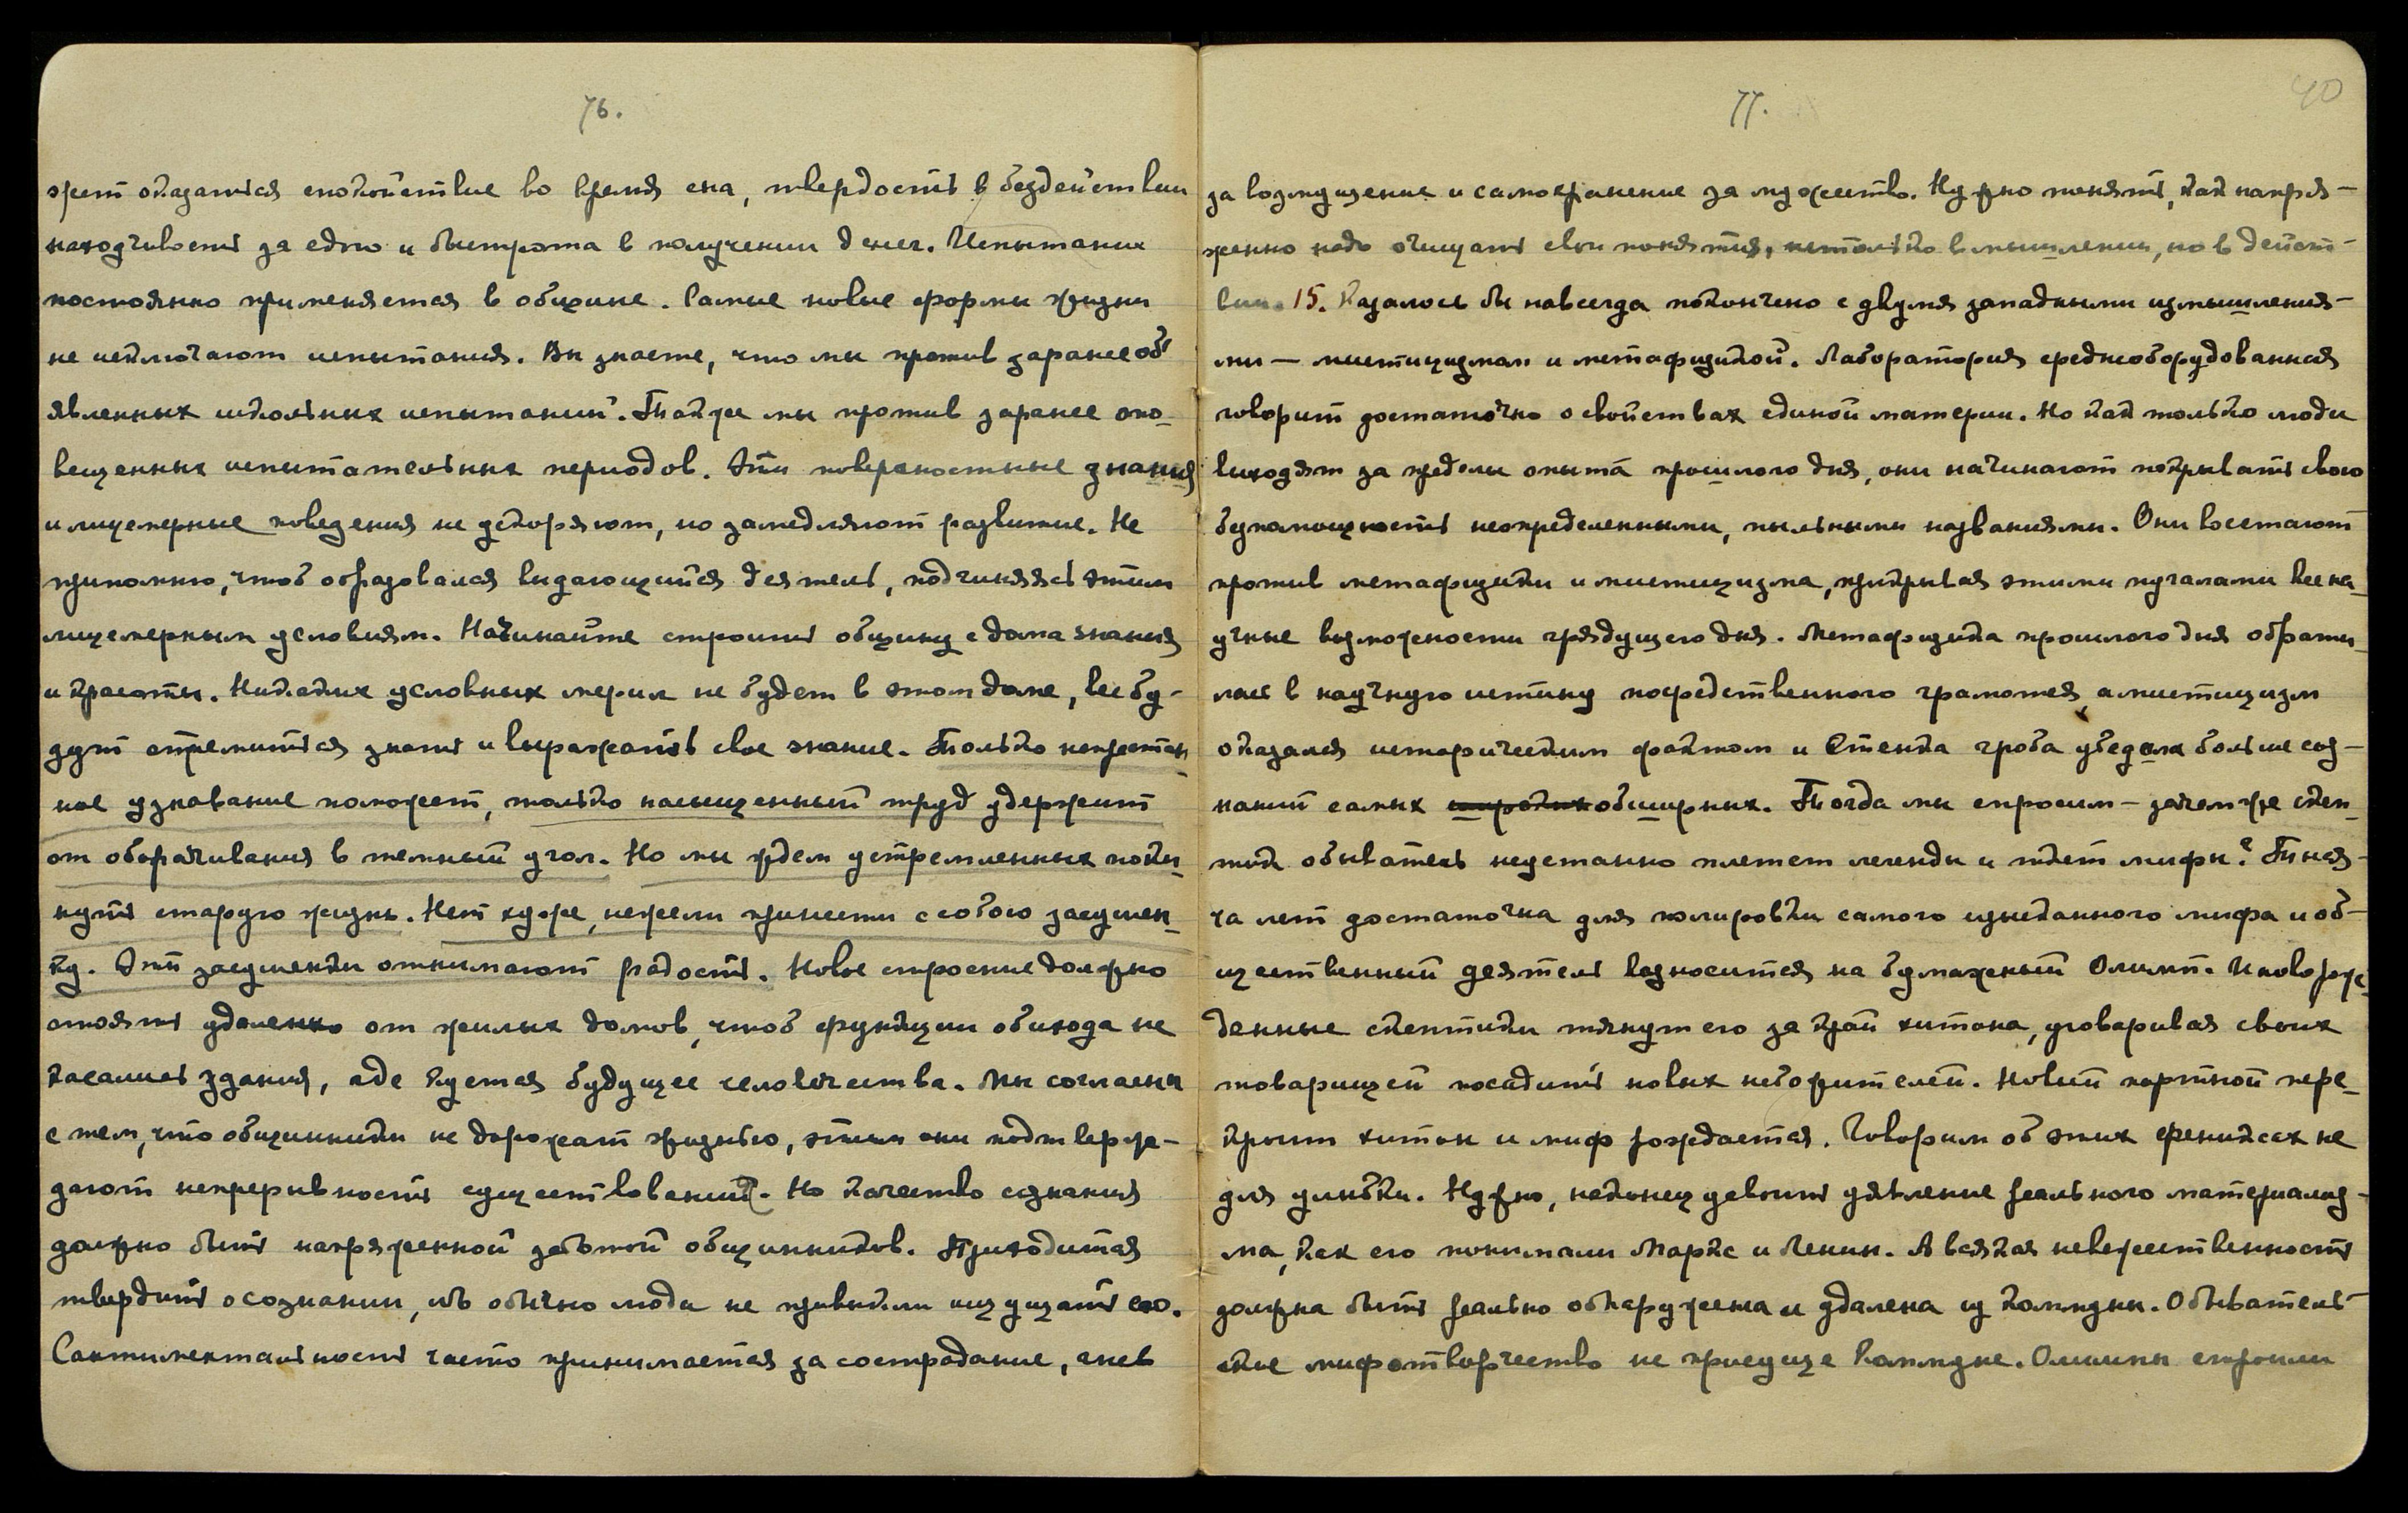 76.
жет оказаться спокойствие во время сна, твердость в бездействии
находчивость за едою и быстрота в получении денег. Испытание
постоянно применяется в общине. Самые новые формы жизни
не исключают испытания. Вы знаете, что мы против заранее об'
явленных школьных испытаний. Также мы против заранее опо-
вещенных испытательных периодов. Эти поверхностные знания
и лицемерные поведения не ускоряют, но замедляют развитие. Не
припомню, чтоб образовался выдающийся деятель, подчиняясь этим
лицемерным условиям. Начинайте строить общину с дома знания
и красоты. Никаких условных мерил не будет в этом доме, все бу-
дут стремиться знать и выражать свое знание. Только непрестан-
ное узнавание поможет, только насыщенный труд удержит
от оборачивания в темный угол. Но мы ждем устремленных поки-
нуть старую жизнь. Нет хуже, нежели принести с собою засушен-
ку. Эти засушенки отнимают радость. Новое строение должно
стоять удаленно от жилых домов, чтоб функции обихода не
касались здания, где куется будущее человечества. Мы согласны
с тем, что общинники не дорожат жизнью, этим они подтверж-
дают непрерывность существований. Но качество сознания
должно быть напряженной заботой общинников. Приходится
твердить о сознании, ибо обычно люди не привыкли ощущать его.
Сантиментальность часто принимается за сострадание, гнев
77.
40
за возмущение и самохранение за мужество. Нужно понять, как напря-
женно надо очищать свои понятия, не только в мышлении, но в дейст-
вии. 15. Казалось бы навсегда покончено с двумя западными измышления-
ми — мистицизмом и метафизикой. Лаборатория среднеоборудованная
говорит достаточно о свойствах единой материи. Но как только люди
выходят за пределы опыта прошлого дня, они начинают покрывать свою
беспомощность неопределенными, пыльными названиями. Они восстают
против метафизики и мистицизма, прикрывая этими пугалами все на-
учные возможности грядущего дня. Метафизика прошлого дня обрати-
лась в научную истину посредственного грамотея, а мистицизм
оказался историческим фактом и стенка гроба убедила больше соз-
наний самых широких обширных. Тогда мы спросим — зачем же скеп-
тик обыватель неустанно плетет легенды и ткет мифы? Тыся-
ча лет достаточна для полировки самого изысканного мифа и об-
щественный деятель возносится на бумажный Олимп. И новорож-
денные скептики тянут его за край хитона, уговаривая своих
товарищей посадить новых небожителей. Новый портной пере-
кроит хитон и миф рождается. Говорим об этих фениксах не
для улыбки. Нужно, наконец усвоить уявление реального материализ-
ма, как его понимали Маркс и Ленин. А всякая невежественность
должна быть реально обнаружена и удалена из Коммуны. Обыватель-
ское мифотворчество не присуще Коммуне. Олимпы строили